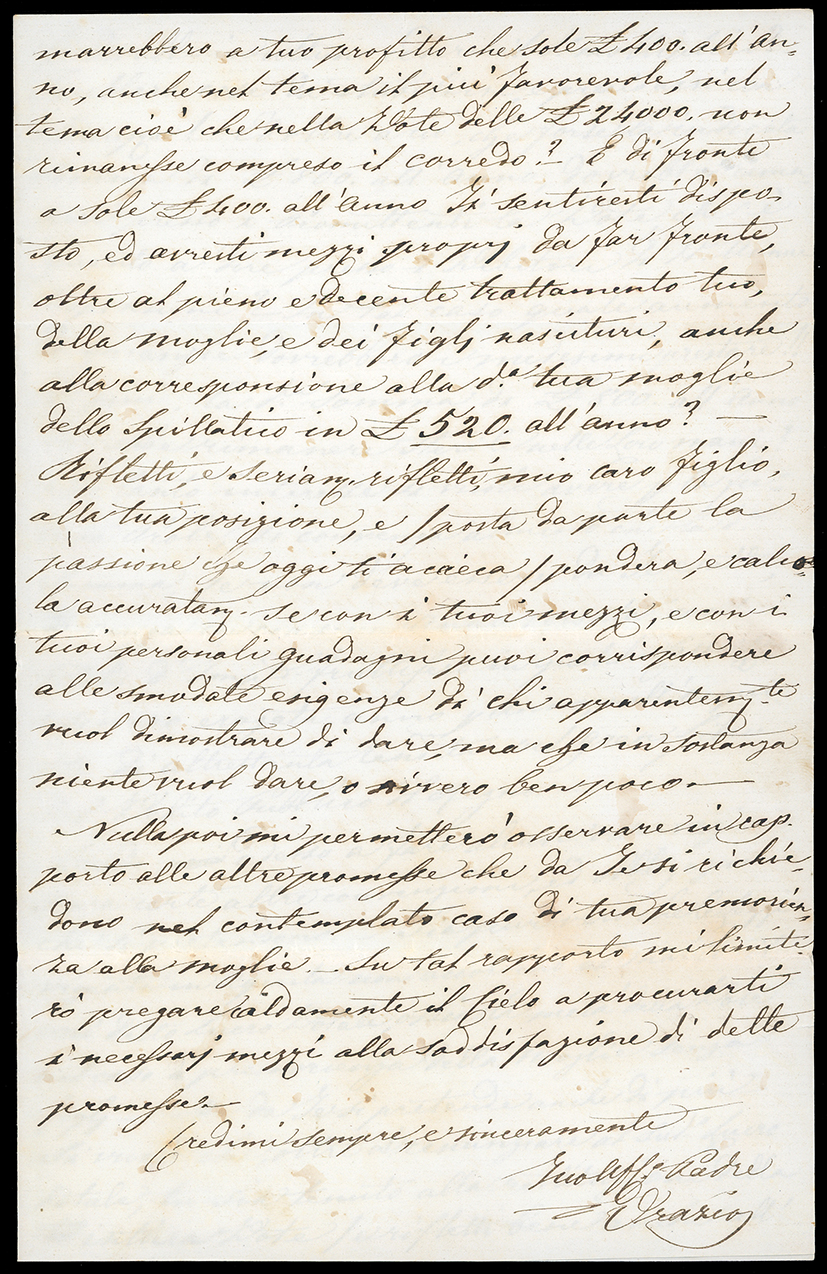 marrebbero a tuo profitto che sole £ 400. all'an-
no, anche nel tema il più favorevole, nel
tema cioè che nella Dote delle £ 24000. non
rimanesse compreso il corredo? E di fronte
a sole £ 400. all'anno Ti sentiresti dispo-
sto, ed avresti mezzi proprj da far fronte,
oltre al pieno e decente trattamento tuo,
della moglie, e dei figlj nascituri, anche
alla corresponsione alla d.a tua moglie
dello Spillatico in £ 520. all'anno? —
Rifletti, e seriam. rifletti, mio caro figlio,
alla tua posizione, e /posta da parte la
passione che oggi ti acceca/ pondera, e calco-
la accuratam. se con i tuoi mezzi, e con i
tuoi personali guadagni puoi corrispondere
alle smodate esigenze di chi apparentem.te
vuol dimostrare di dare, ma che in sostanza
niente vuol dare, o vivero ben poco —
Nulla poi mi permetterò osservare in rap-
porto alle altre promesse che da Te si richie-
dono nel contemplato caso di tua premorien-
za alla moglie. Su tal rapporto mi limite-
rò pregare caldamente il Cielo a procurarti
i necessarj mezzi alla soddisfazione di dette
promesse. —
Credimi sempre, e sinceramente
Tuo Aff. Padre
Orazio